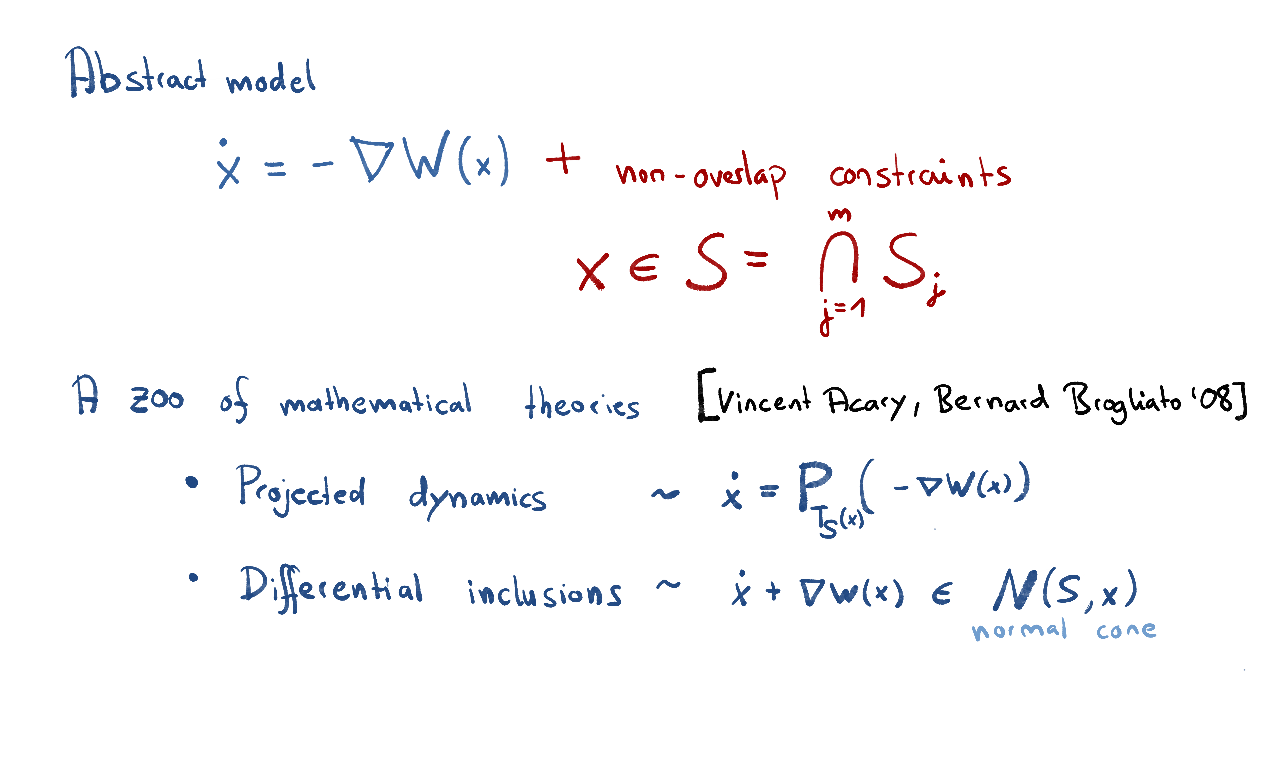 Abstract model
ẋ = - ∇W(x) + non-overlap constraints
x ∈ S = ⋂_{j=1}^{m} S_j
A zoo of mathematical theories [Vincent Acary, Bernard Brogliato '08]
• Projected dynamics ~ ẋ = P_{T_S(x)}(-∇W(x))
• Differential inclusions ~ ẋ + ∇W(x) ∈ N(S,x)
normal cone